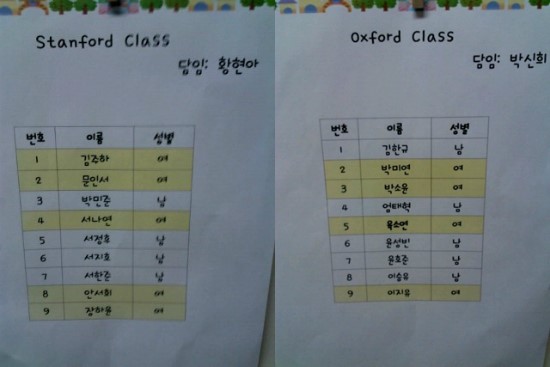 Stanford Class
담임: 황현아
번호 이름 성별
1 김주하 여
2 문인서 여
3 박민준 남
4 서나연 여
5 서정호 남
6 서지호 남
7 서한준 남
8 안서희 여
9 장하윤 여
Oxford Class
담임: 박신희
번호 이름 성별
1 김한규 남
2 박미연 여
3 박소윤 여
4 엄태혁 남
5 육소연 여
6 윤성빈 남
7 윤호준 남
8 이승유 남
9 이지유 여